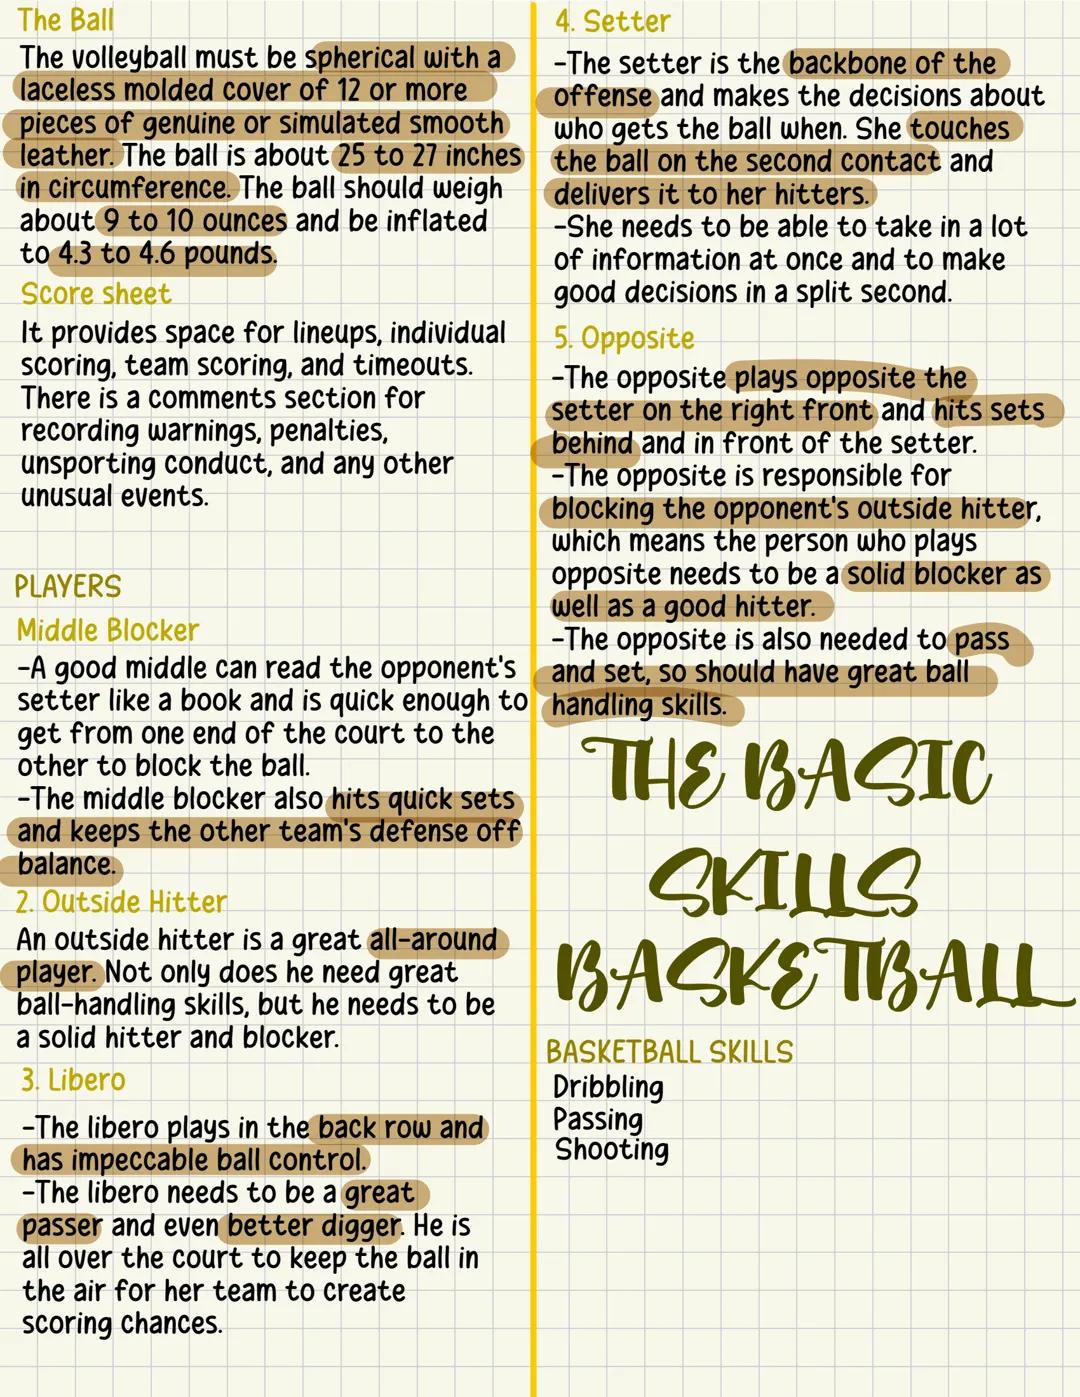 The Ball
The volleyball must be spherical with a
laceless molded cover of 12 or more
pieces of genuine or simulated smooth
leather. The ball is about 25 to 27 inches
in circumference. The ball should weigh
about 9 to 10 ounces and be inflated
to 4.3 to 4.6 pounds.
Score sheet
It provides space for lineups, individual
scoring, team scoring, and timeouts.
There is a comments section for
recording warnings, penalties,
unsporting conduct, and any other
unusual events.
PLAYERS
Middle Blocker
-A good middle can read the opponent's
setter like a book and is quick enough to
get from one end of the court to the
other to block the ball.
-The middle blocker also hits quick sets
and keeps the other team's defense off
balance.
2. Outside Hitter
An outside hitter is a great all-around
player. Not only does he need great
ball-handling skills, but he needs to be
a solid hitter and blocker.
3. Libero
-The libero plays in the back row and
has impeccable ball control.
-The libero needs to be a great
passer and even better digger. He is
all over the court to keep the ball in
the air for her team to create
scoring chances.
4. Setter
-The setter is the backbone of the
offense and makes the decisions about
who gets the ball when. She touches
the ball on the second contact and
delivers it to her hitters.
-She needs to be able to take in a lot
of information at once and to make
good decisions in a split second.
5. Opposite
-The opposite plays opposite the
setter on the right front and hits sets
behind and in front of the setter.
-The opposite is responsible for
blocking the opponent's outside hitter,
which means the person who plays
opposite needs to be a solid blocker as
well as a good hitter.
-The opposite is also needed to pass
and set, so should have great ball
handling skills.
THE BASIC
SKILLS
BASKETBALL
BASKETBALL SKILLS
Dribbling
Passing
Shooting